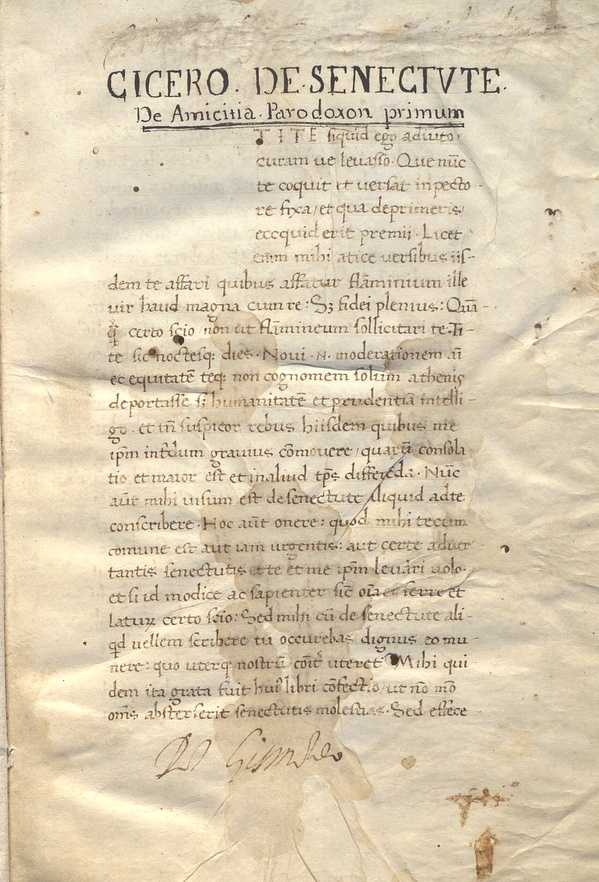 CICERO. DE. SENECTVTE.
De Amicitia. Parodoxon primum
TITE siquid ego adiuto
curam ue leuasso. Que nūc
te coquit et versat in pecto-
re fixa/ et qua deprimeris/
eccquid erit premii. Licet
enim mihi atice versibus iis-
dem te affari quibus affatur flāminium ille
vir haud magna cum re: Sʒ fidei plenius: Quā-
certo scio non ut flāmineum sollicitari te Ti-
te sic noctesq; dies. Noui .n. moderationem āī
et equitatē teq; non cognomem solum athenis
deportasse sʒ humanitatē et prudentiā intelli-
go. et tn̄ suspicor rebus hiisdem quibus me
ipm̄ intdum grauius cōmouere/ quarū consola
tio et maior est et in aliud tps̄ differēda. Nūc
aūt mihi visum est de senectute aliquid ad te
conscribere. Hoc aūt onere: quod mihi tecum
comune est aut iam urgentis: aut certe aduen
tantis senectutis et te et me ipm̄ leuāri uolo.
et si id modice ac sapienter sic̄ oīa et ferre et
laturū certo scio: Sed mihi cū de senectute ali-
qd vellem scribere tu occurebas dignus eo mu-
nere: quo uterq; nostrū cōīt vteret Mihi qui
dem ita grata fuit hui libri confectio/ ut nō mō
omīs absterserit senectutis molestias. Sed effece-